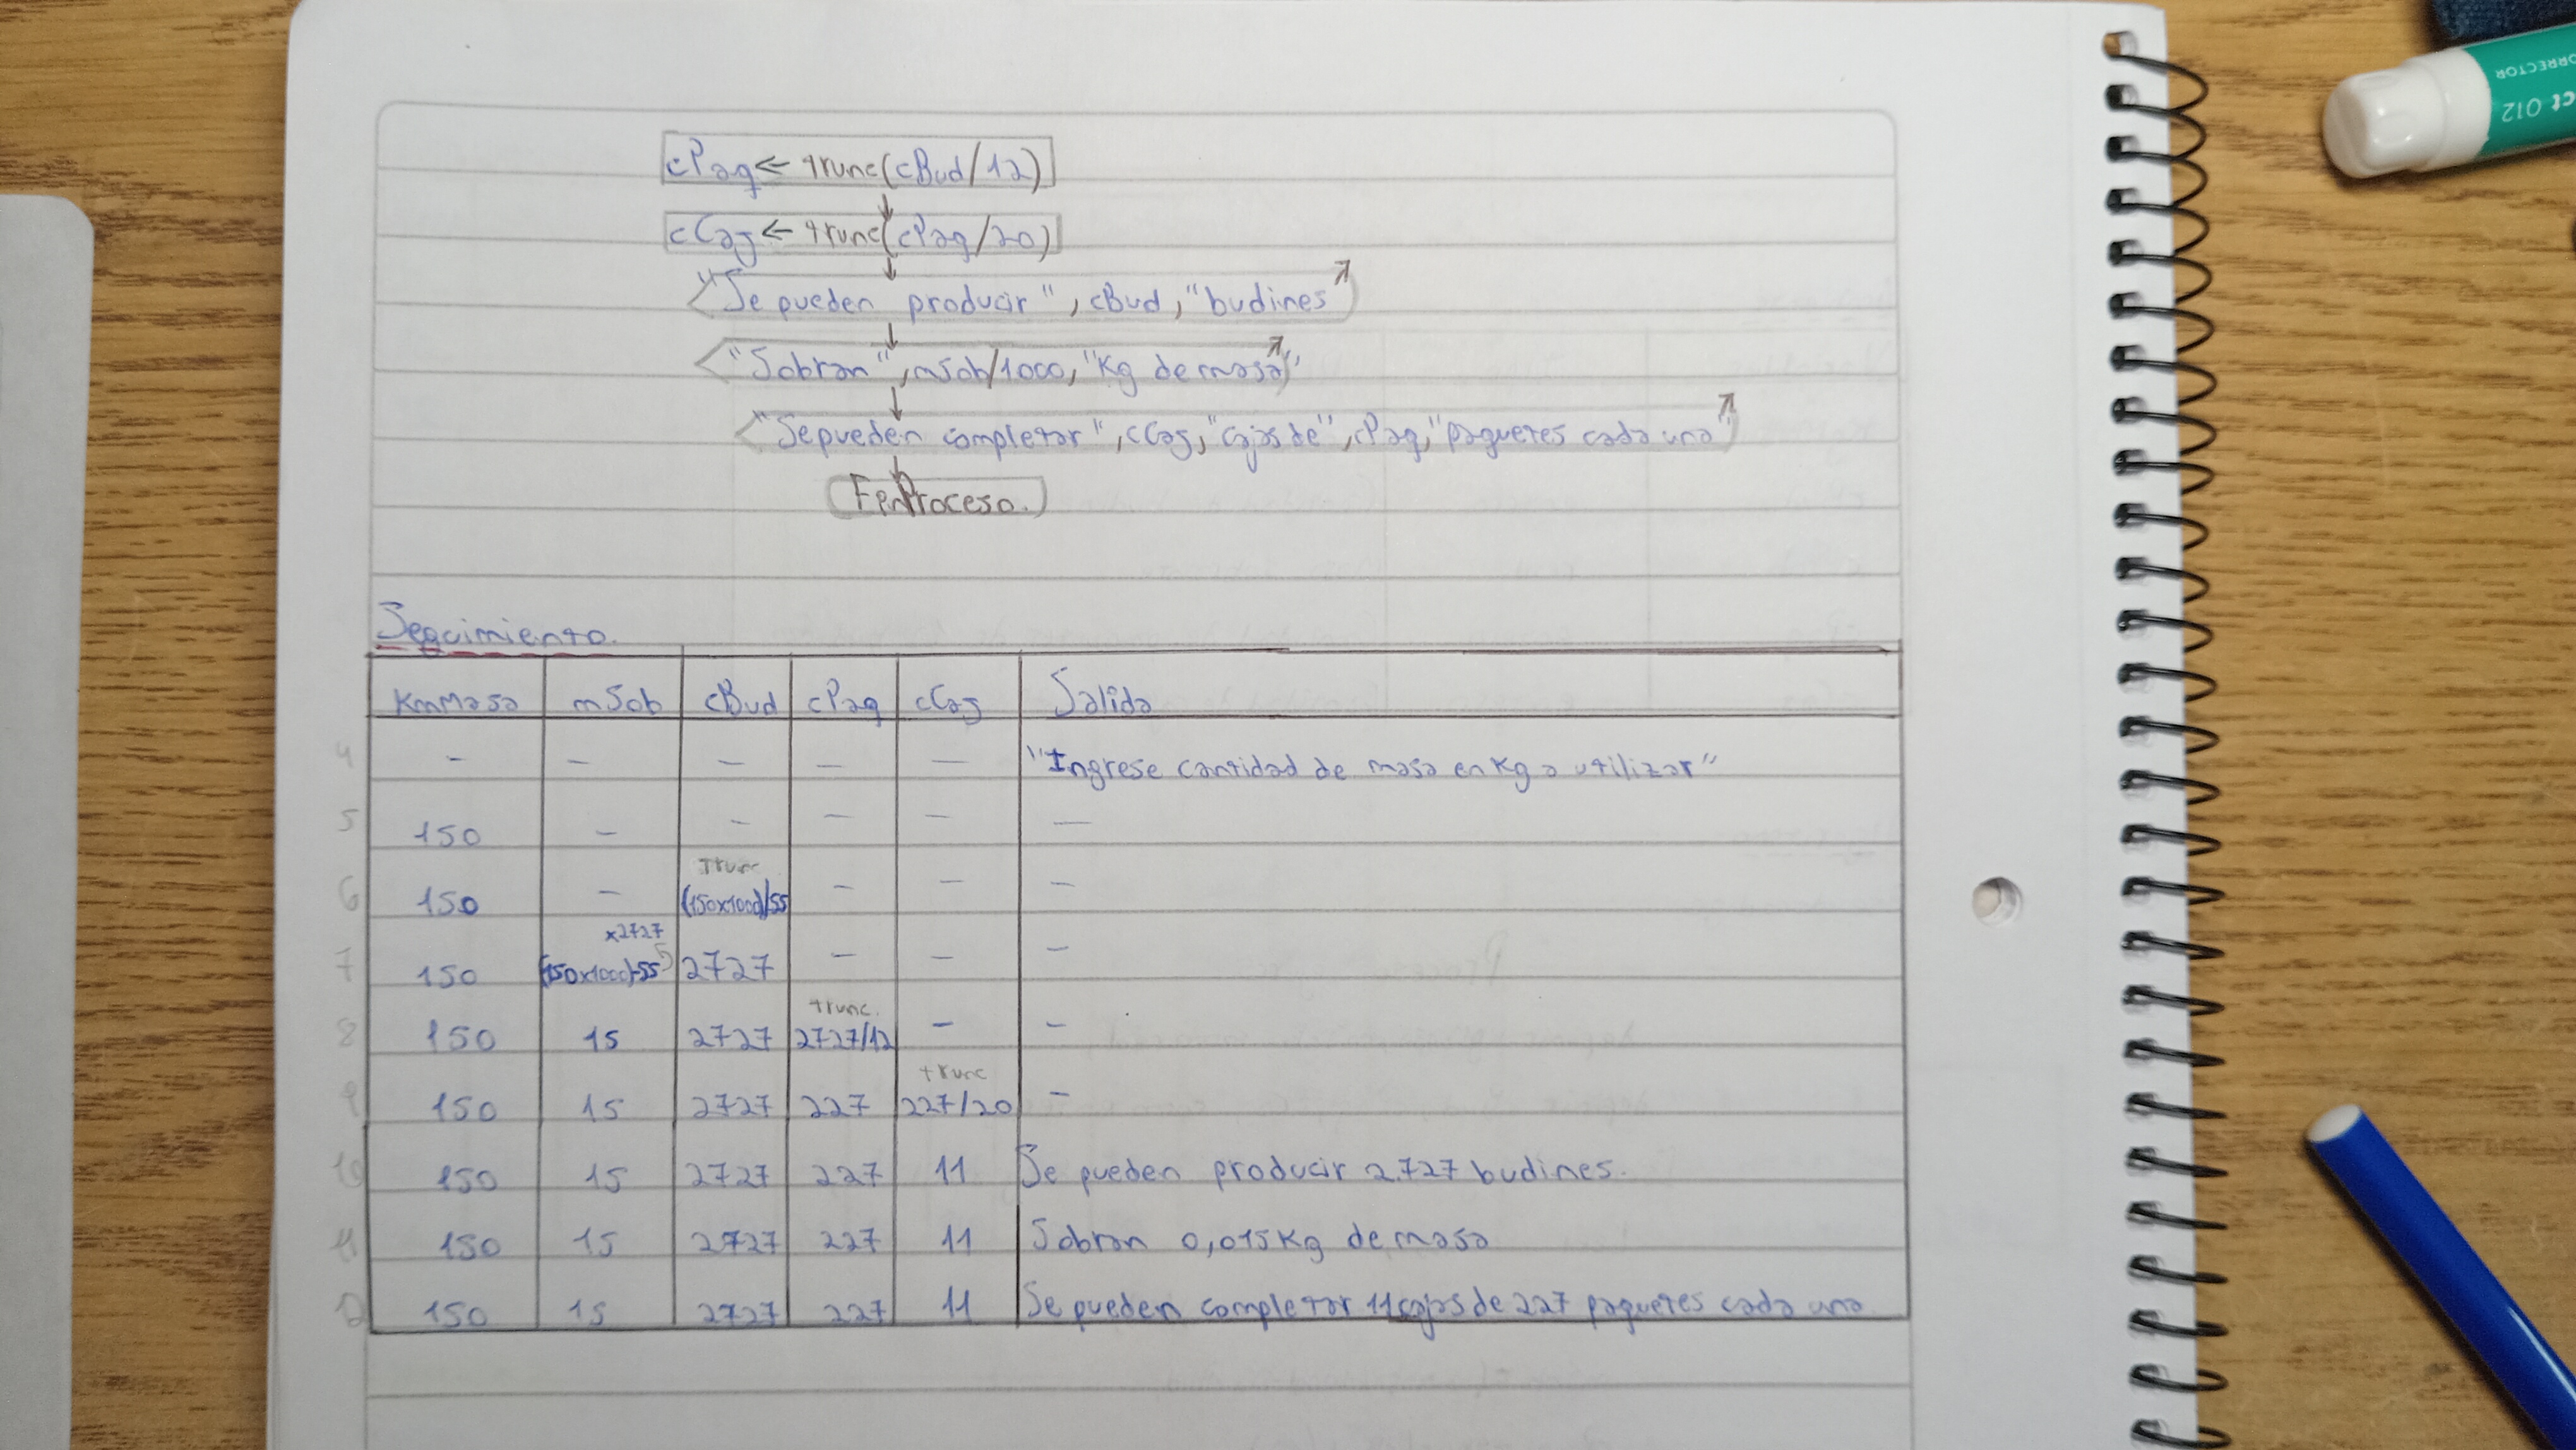 cPaq ← trunc(cBud/12)
cCaj ← trunc(cPaq/20)
"Se pueden producir", cBud, "budines
"Sobran", mSob/1000, "Kg de masa"
"Se pueden completar", cCaj, "cajas de", cPaq, "paquetes cada una"
FinProceso.
Seguimiento.
KmMasa mSob cBud cPaq cCaj Salida
4 - - - - - "Ingrese cantidad de masa en Kg a utilizar"
5 150 - - - - -
trunc
6 150 - (150x1000)/55 - - -
x2727
7 150 (150x1000)-55 2727 - - -
trunc.
8 150 15 2727 2727/12 - -
trunc
9 150 15 2727 227 227/20 -
10 150 15 2727 227 11 Se pueden producir 2.727 budines.
11 150 15 2727 227 11 Sobran 0,015Kg de masa
12 150 15 2727 227 11 Se pueden completar 11 cajas de 227 paquetes cada una
RRECTOR
ct 012